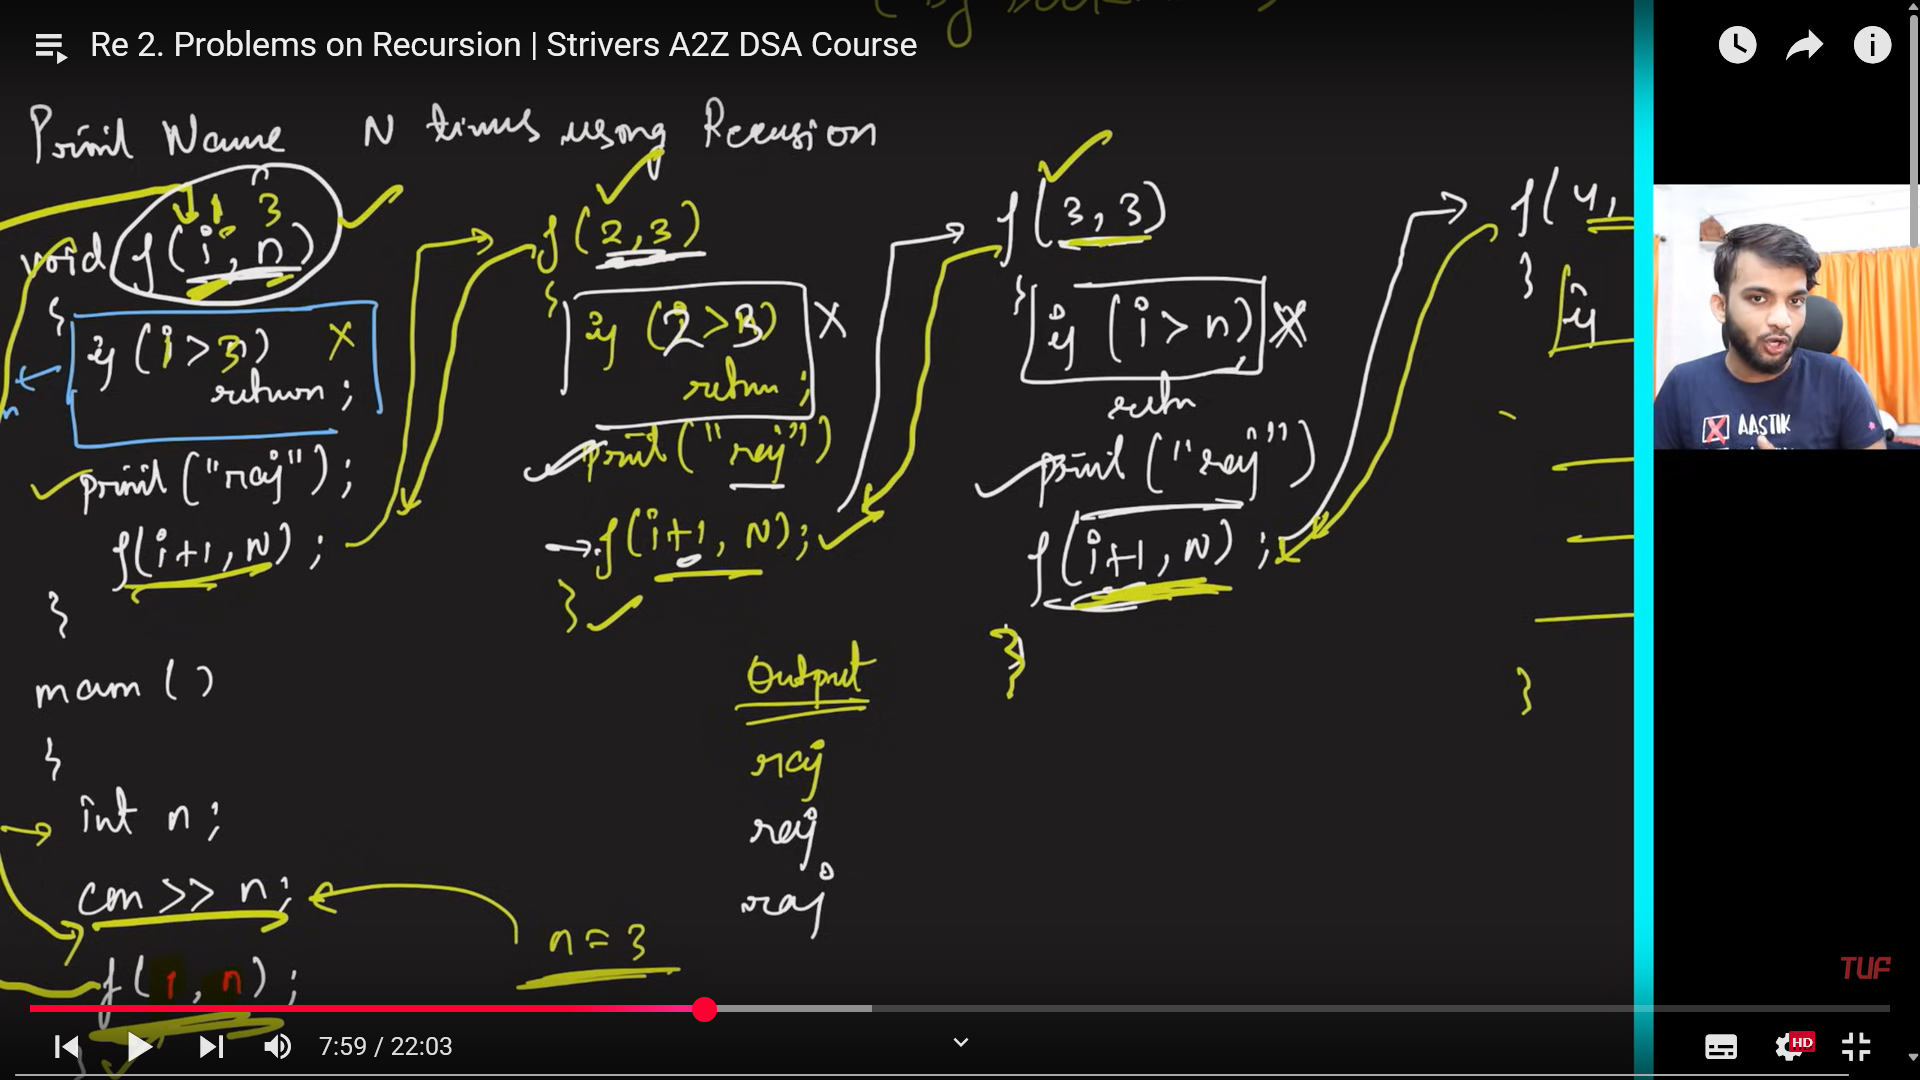 Re 2. Problems on Recursion | Strivers A2Z DSA Course
Print Name N times using Recursion
1 3
void f(i, n)
{
if (i > n) X
return;
print("raj");
f(i+1, N);
}
main()
{
int n;
cin >> n;
f(1, n);
}
n = 3
f(2,3)
{
if (2>3) X
return;
print("raj")
f(i+1, N);
}
f(3, 3)
{
if (i > n) X
retn
print("raj")
f(i+1, N);
}
f(4,
{
if
}
Output
raj
raj
raj
AASTIK
TUF
7:59 / 22:03
HD